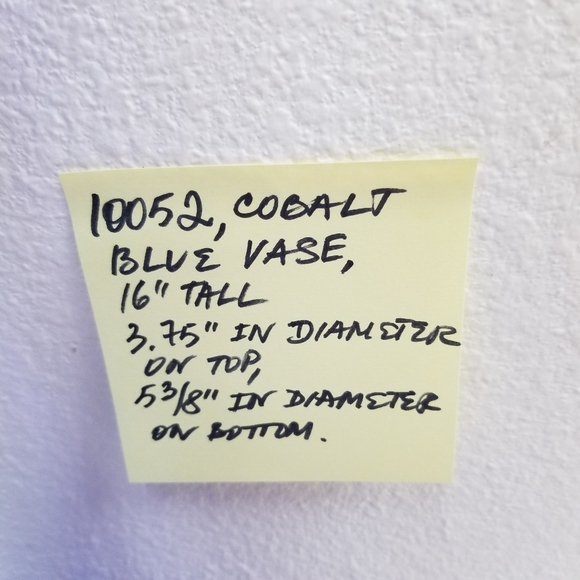 10052, COBALT
BLUE VASE,
16" TALL
3.75" IN DIAMETER
ON TOP,
5 3/8" IN DIAMETER
ON BOTTOM.